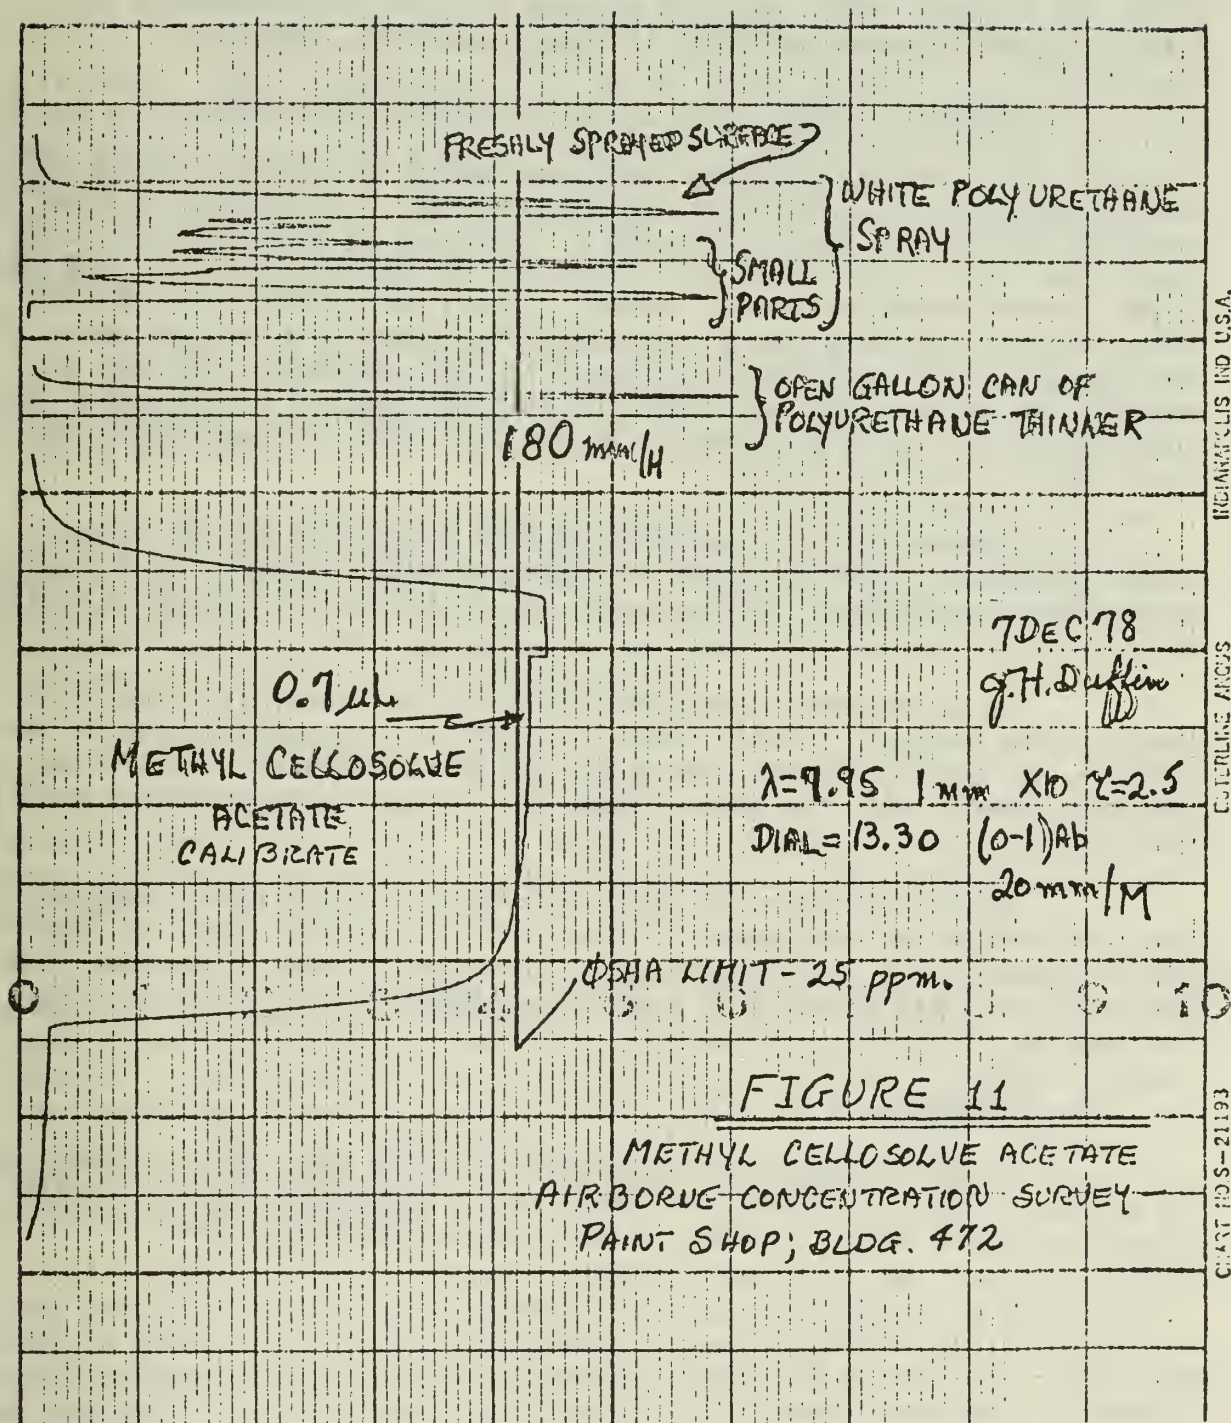 FRESHLY SPRAYED SURFACE
WHITE POLYURETHANE
SPRAY
SMALL
PARTS
OPEN GALLON CAN OF
POLYURETHANE THINNER
180 mm/H
7 DEC 78
G.H. Duffin
0.7 uL
METHYL CELLOSOLVE
ACETATE
CALIBRATE
1 mm X10 τ=2.5
DIAL = 13.30 (0-1)Ab
20 mm/M
OSHA LIMIT - 25 ppm.
0
10
FIGURE 11
METHYL CELLOSOLVE ACETATE
AIRBORNE CONCENTRATION SURVEY
PAINT SHOP; BLDG. 472
INDIANAPOLIS IND U.S.A.
ESTERLINE ANGUS
CHART NO. S-21193